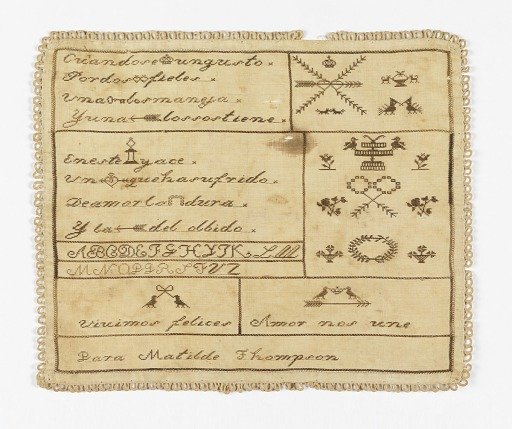 Cuandose ungusto
Pordos fieles
Una losmaneja
Yuna lossostiene
Eneste yace
Un quehasufrido
Deamorla dura
Y la del olbido
ABCDEFGHYJKLM
MNOPQRSTVZ
Vivimos felices
Amor nos une
Para Matilde Thompson